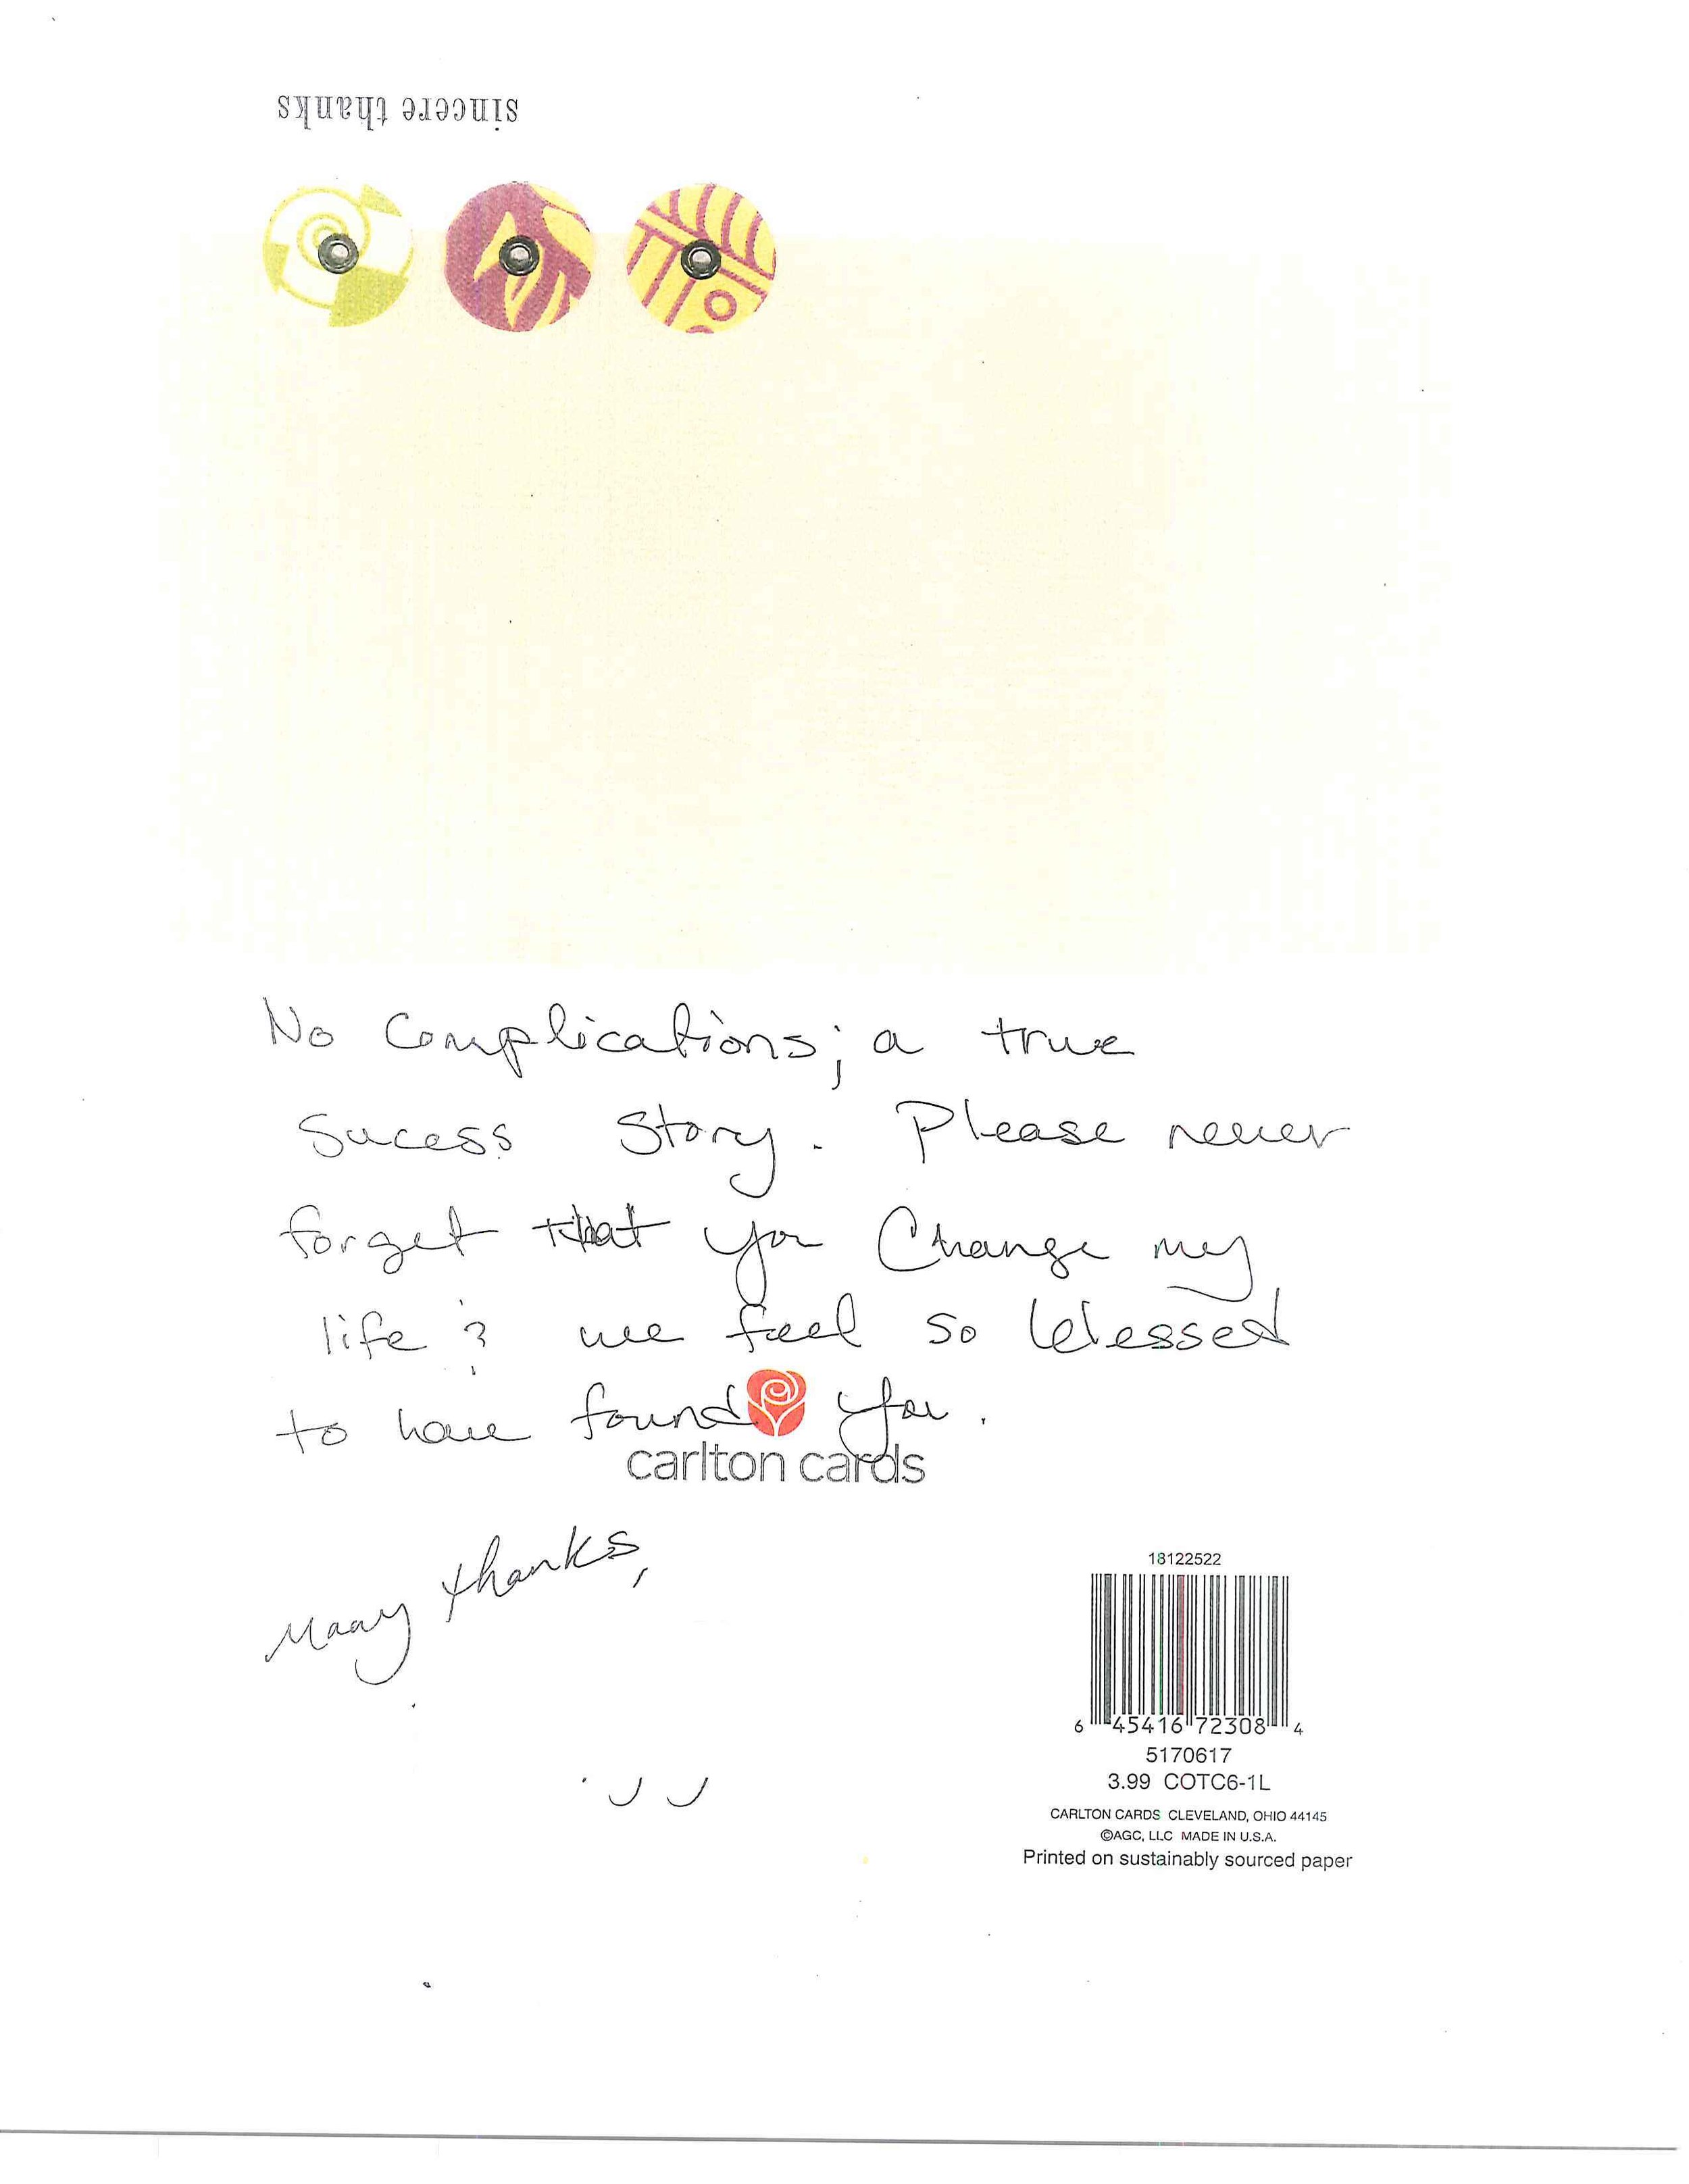 sincere thanks
No Complications; a true
Sucess Story. Please never
forget that you Change my
life & we feel so blessed
to have found you.
carlton cards
Many thanks,
18122522
6 45416 72308 4
5170617
3.99 COTC6-1L
CARLTON CARDS CLEVELAND, OHIO 44145
©AGC, LLC MADE IN U.S.A.
Printed on sustainably sourced paper